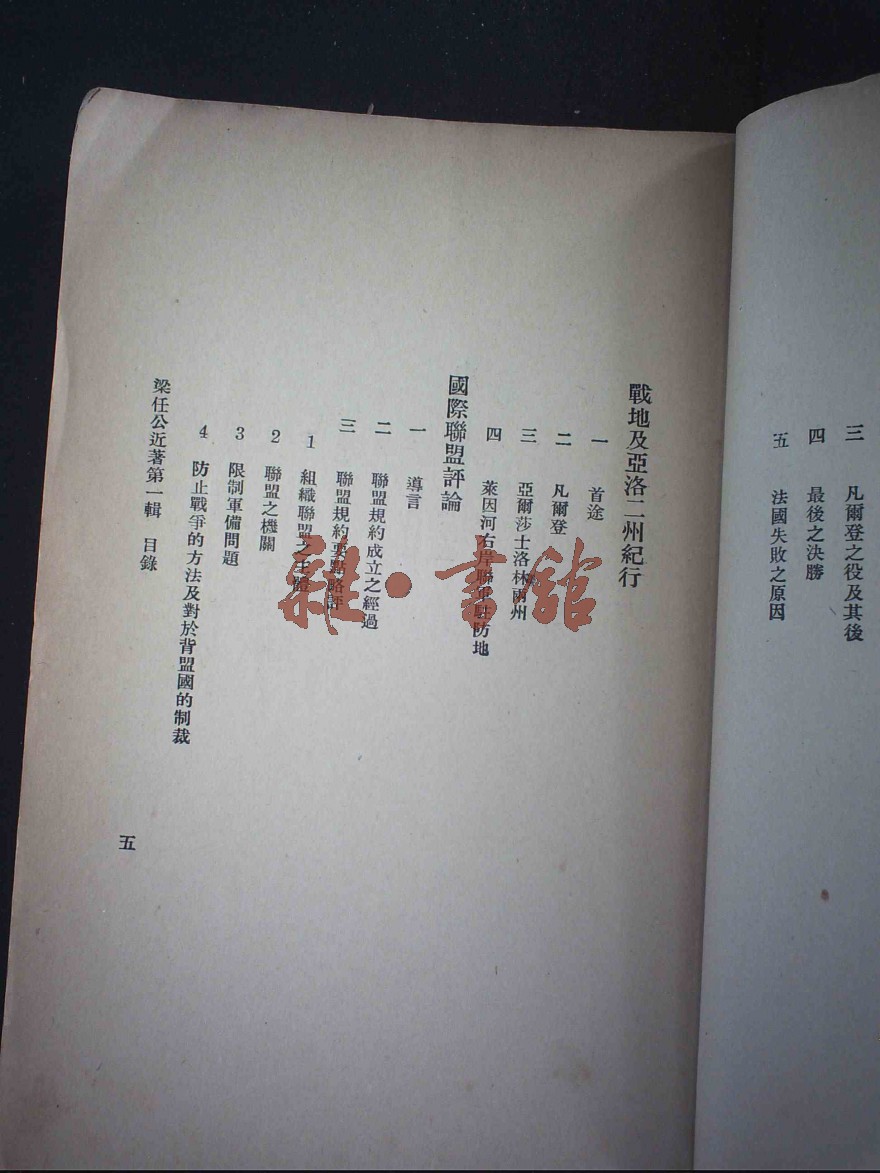 三　凡爾登之役及其後
四　最後之決勝
五　法國失敗之原因
戰地及亞洛二州紀行
一　首途
二　凡爾登
三　亞爾莎士洛林兩州
四　萊因河右岸聯軍駐防地
國際聯盟評論
一　導言
二　聯盟規約成立之經過
三　聯盟規約要點略評
1　組織聯盟之主體
2　聯盟之機關
3　限制軍備問題
4　防止戰爭的方法及對於背盟國的制裁
梁任公近著第一輯　目錄
五
雜·書館